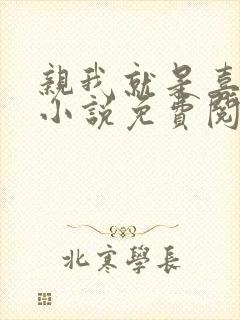 親我就是嘉
小說免費閱
北寒學長